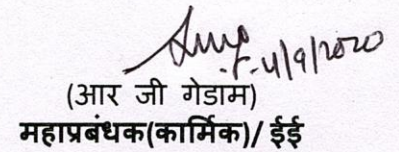 4/9/2020
(आर जी गेडाम)
महाप्रबंधक(कार्मिक)/ ईई